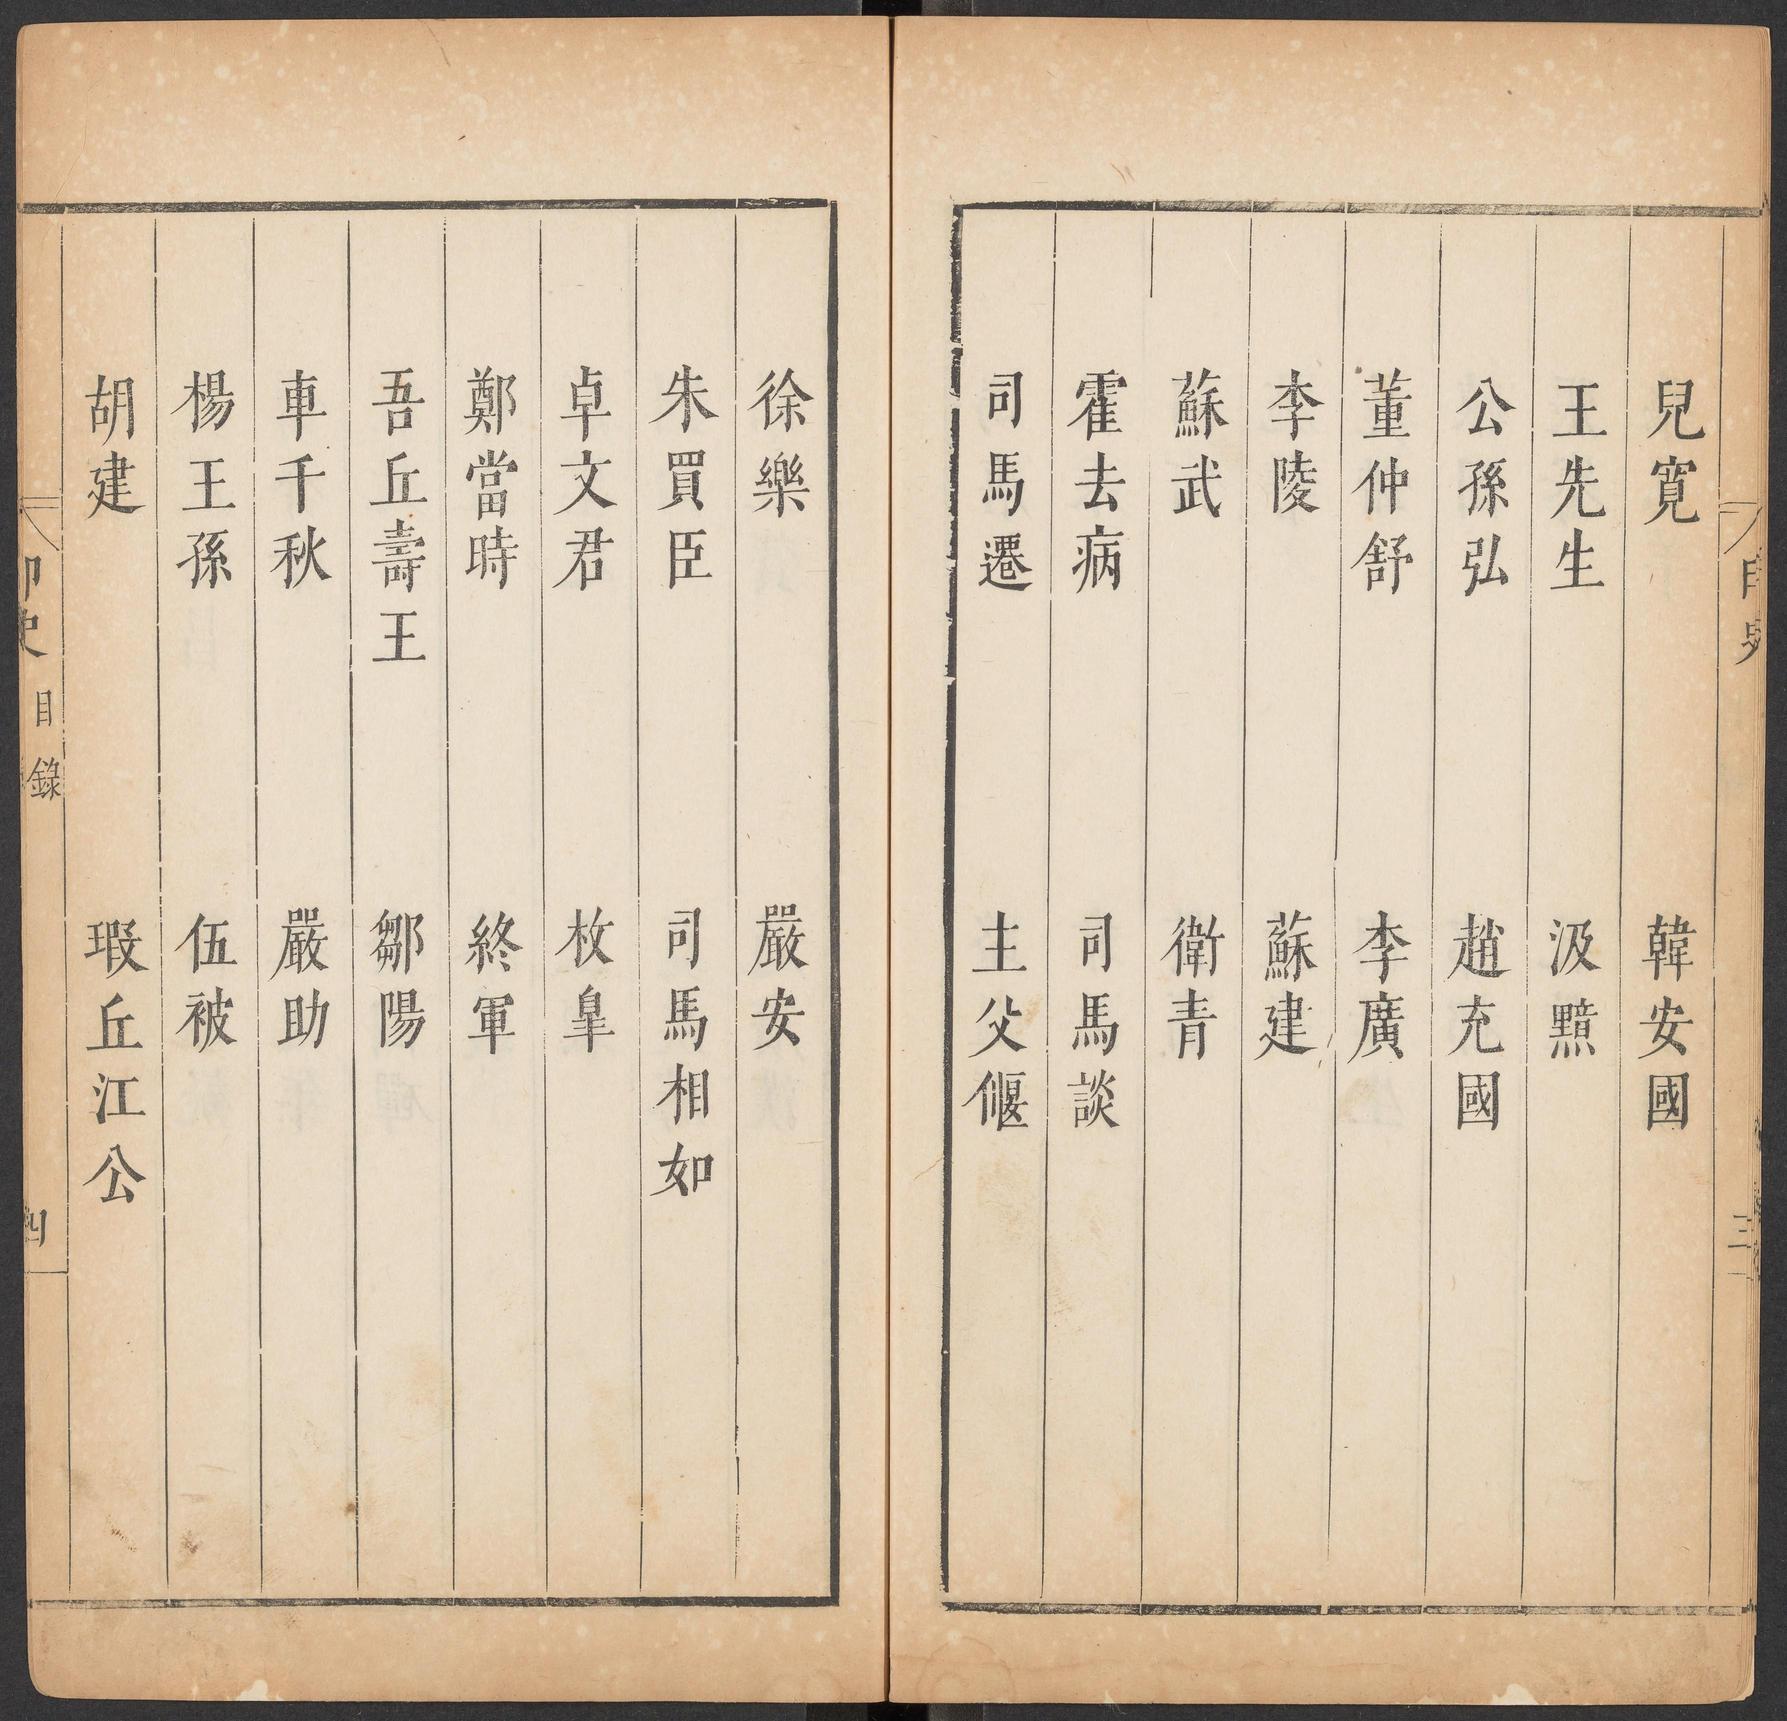 兒寬 韓安國
王先生 汲黯
公孫弘 趙充國
董仲舒 李廣
李陵 蘇建
蘇武 衛青
霍去病 司馬談
司馬遷 主父偃
三
徐樂 嚴安
朱買臣 司馬相如
卓文君 枚臯
鄭當時 終軍
吾丘壽王 鄒陽
車千秋 嚴助
楊王孫 伍被
胡建 瑕丘江公
印史 目錄 四